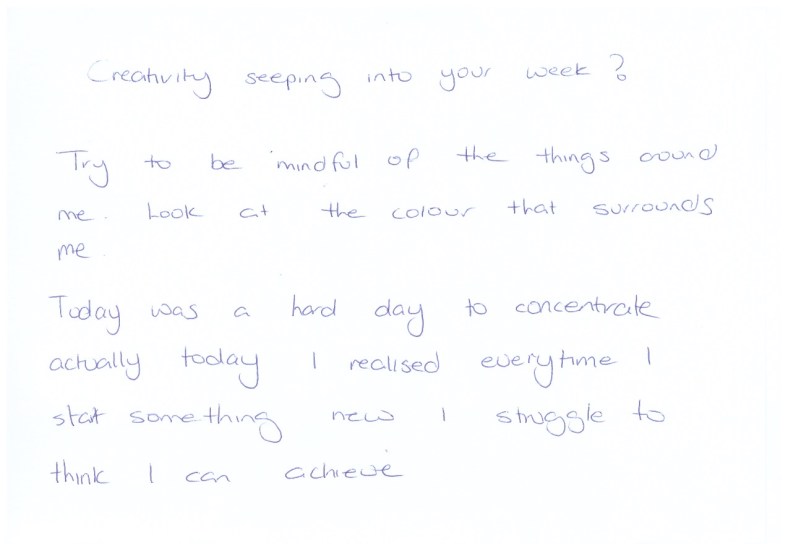 Creativity seeping into your week?
Try to be mindful of the things around
me. Look at the colour that surrounds
me
Today was a hard day to concentrate
actually today I realised everytime I
start something new I struggle to
think I can achieve